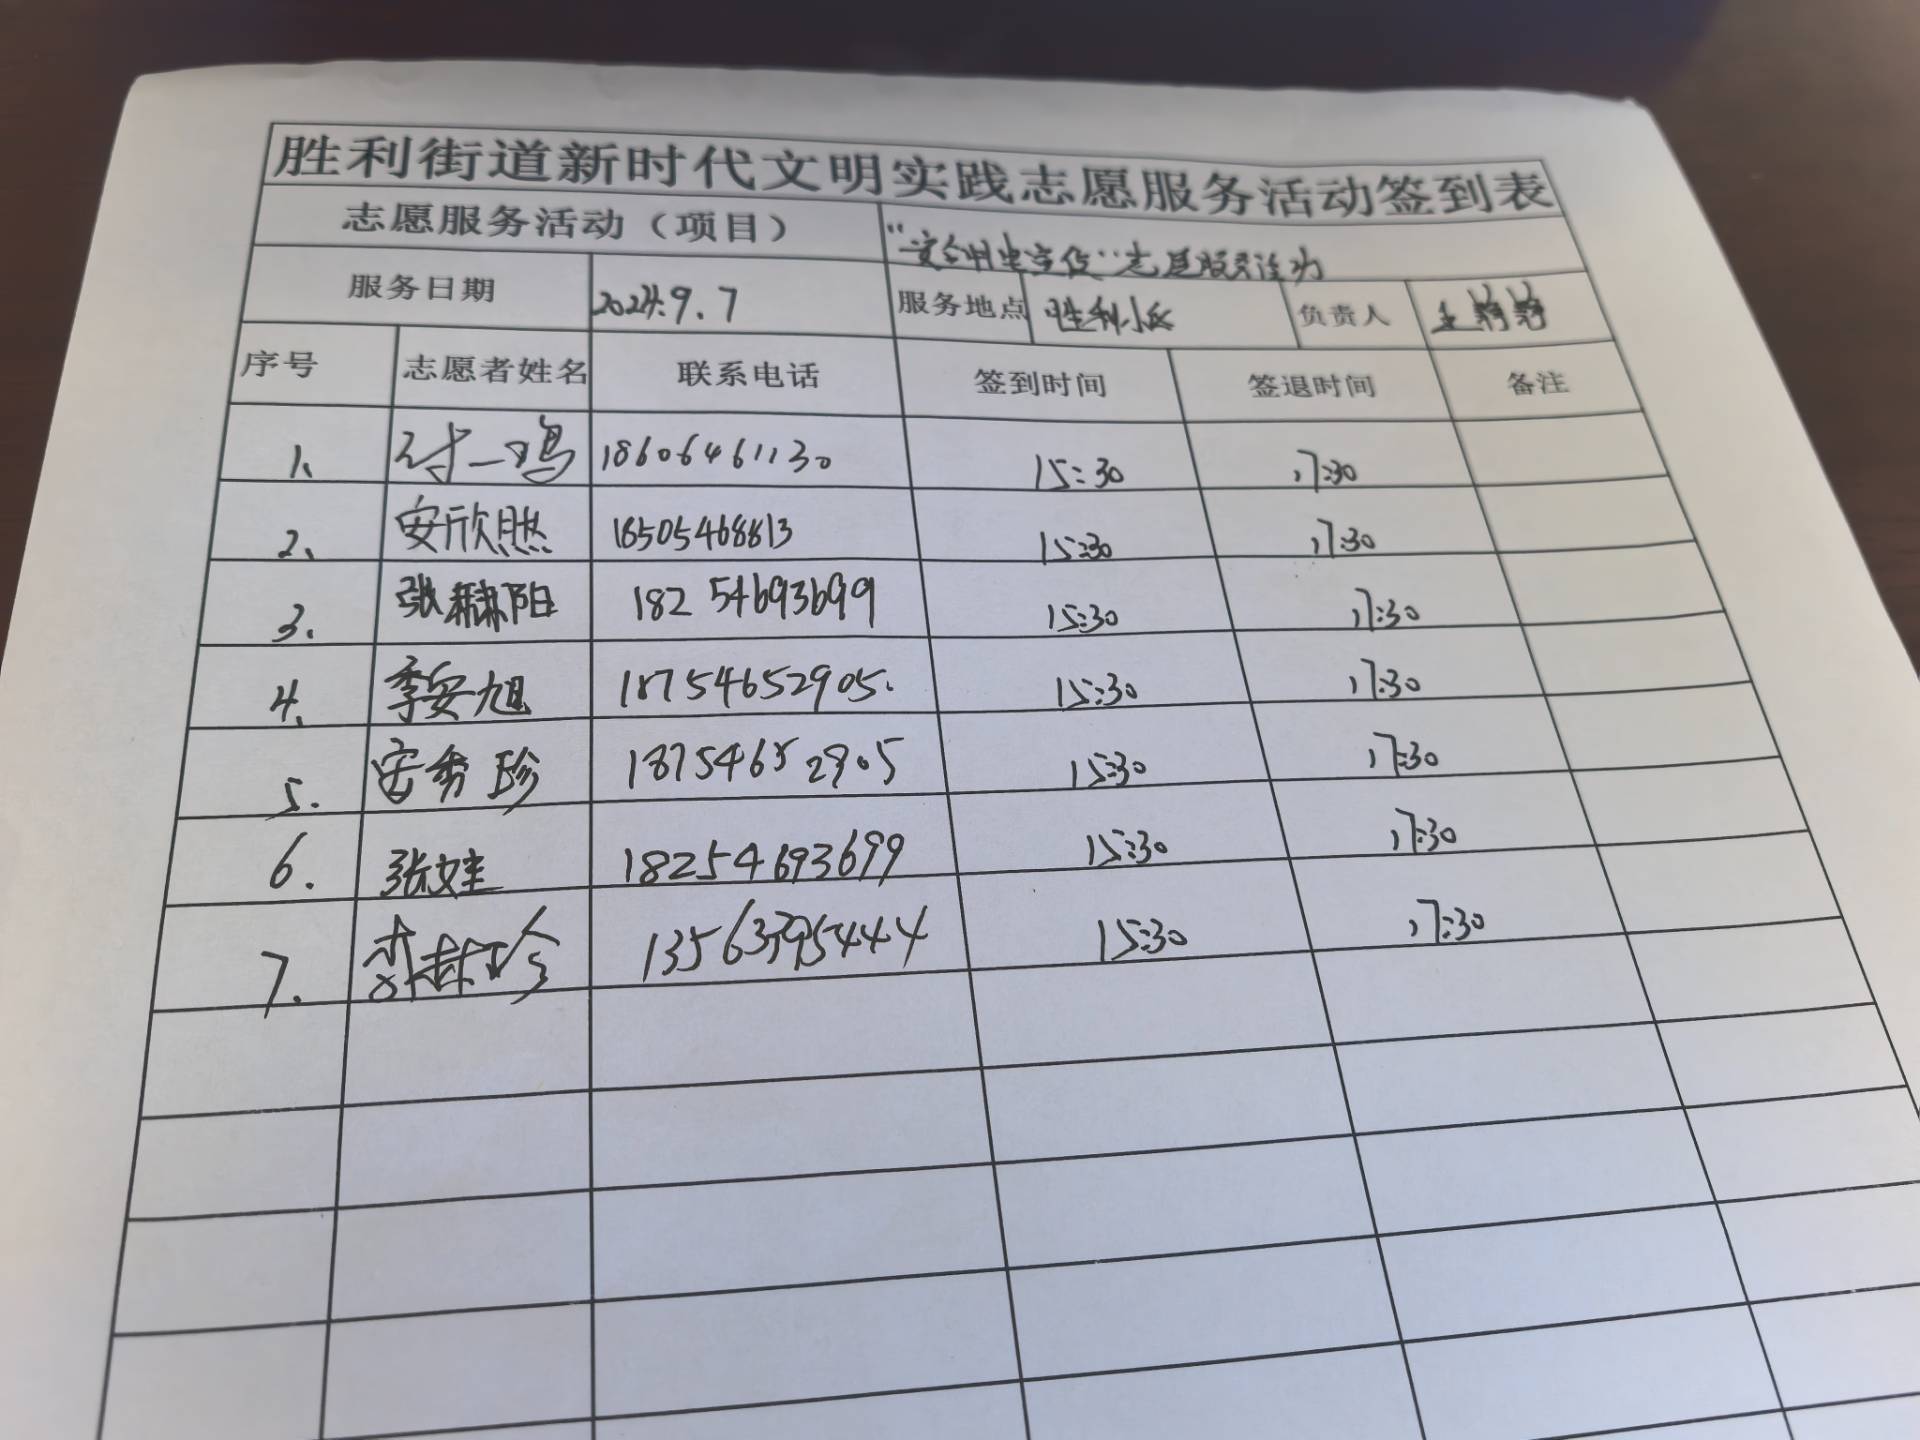 胜利街道新时代文明实践志愿服务活动签到表
志愿服务活动（项目） 志愿服务活动
服务日期 2024.9.7 服务地点 胜利小区 负责人 王静静
序号 志愿者姓名 联系电话 签到时间 签退时间 备注
1、 一鸣 18606461130 15:30 17:30
2、 安欣然 18505468813 15:30 17:30
3. 张赫阳 18254693699 15:30 17:30
4. 李安旭 18754652905. 15:30 17:30
5. 安秀珍 18754652905 15:30 17:30
6. 张娃 18254693699 15:30 17:30
7. 13563395444 15:30 17:30